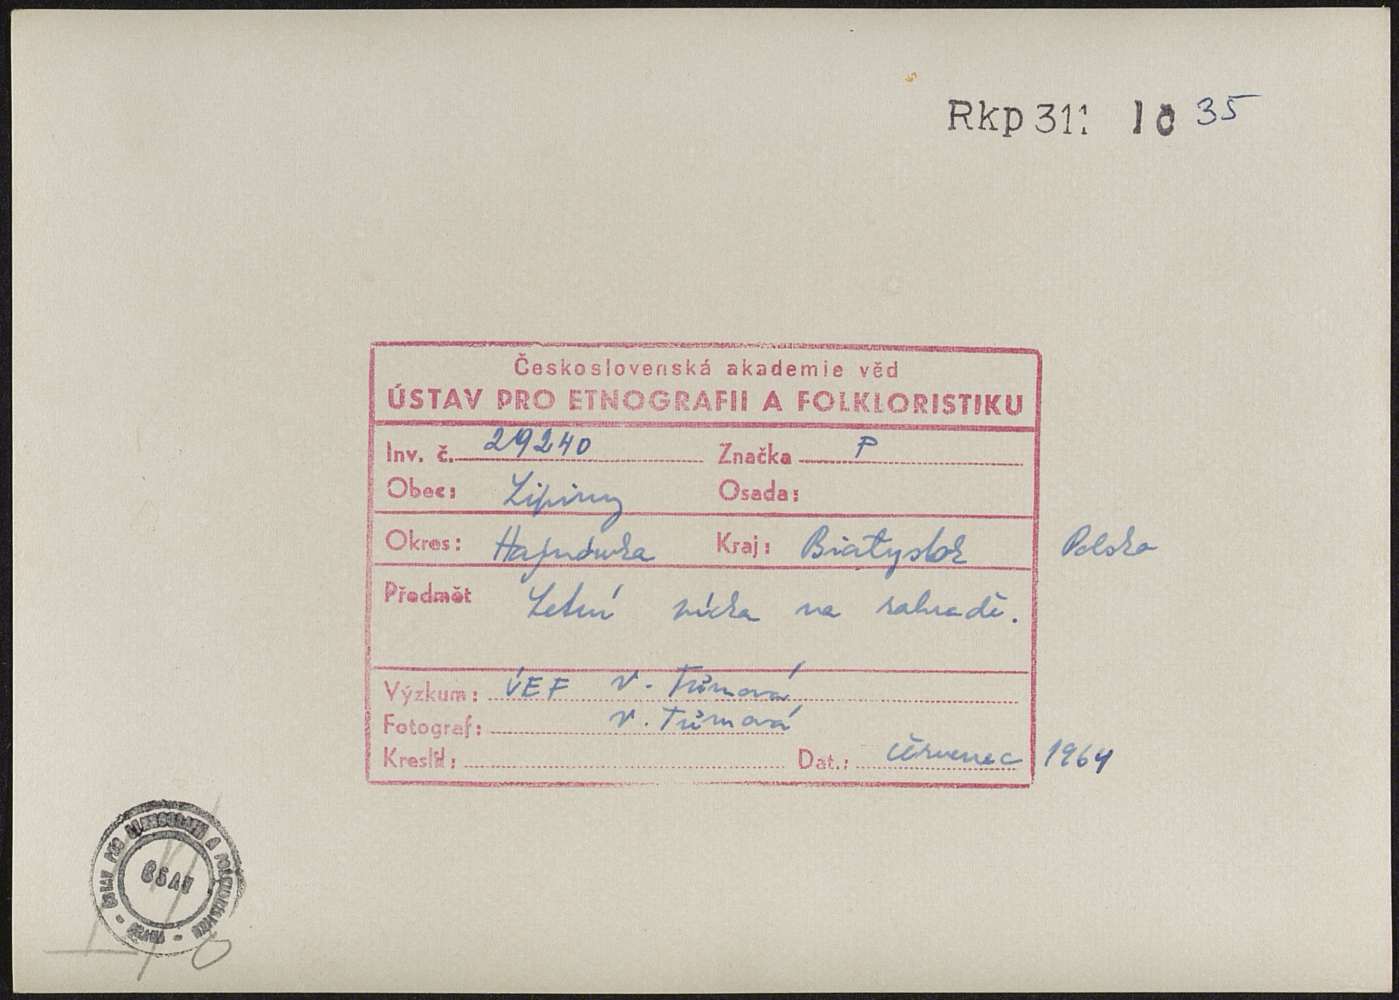 Rkp 311 10 35
Československá akademie věd
ÚSTAV PRO ETNOGRAFII A FOLKLORISTIKU
Inv. č. 29240 Značka P
Obec: Lipiny Osada:
Okres: Hajnówka Kraj: Białystok Polsko
Předmět Letní pícka na zahradě.
Výzkum: ÚEF V. Tůmová
Fotograf: V. Tůmová
Kreslil: Dat.: červenec 1964
ÚSTAV PRO ETNOGRAFII A FOLKLORISTIKU - PRAHA -
ČSAV